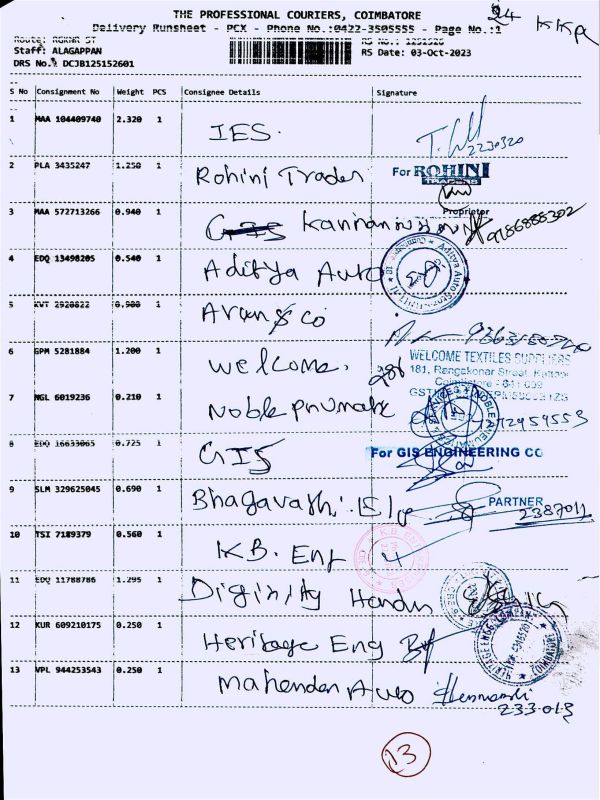 THE PROFESSIONAL COURIERS, COIMBATORE
24
Delivery Runsheet - PCX - Phone No.:0422-3505555 - Page No.:1
Staff: ALAGAPPAN
RS Date: 03-Oct-2023
DRS No.: DCJB125152601
S No Consignment No Weight PCS Consignee Details Signature
1 MAA 104409740 2.320 1 IES.
2230320
2 PLA 3435247 1.250 1 Rohini Trader
For ROHINI
TRADERS
Proprietor
3 MAA 572713266 0.940 1 GIS Kannan
9786888302
4 EDQ 13498205 0.540 1 Aditya Auto
5 KVT 2928822 0.900 1 Arun & Co
6 GPM 5281884 1.200 1 Welcome.
WELCOME TEXTILES SUPPLIERS
181, Rangakonar Street, Kattoor
Coimbatore - 641 009
7 NGL 6019236 0.210 1 Noble pnumatic
8 EDQ 16633065 0.725 1 GIS
For GIS ENGINEERING CO
PARTNER
9 SLM 329625045 0.690 1 Bhagavathi Ele
2387011
10 TSI 7189379 0.560 1 K.B. Eng
11 EDQ 11788786 1.295 1 Diginity Hardw
12 KUR 609210175 0.250 1 Heritage Eng
HERITAGE ENGG. COMPANY
COIMBATORE
13 VPL 944253543 0.250 1 Mahenden Auto
233013
13